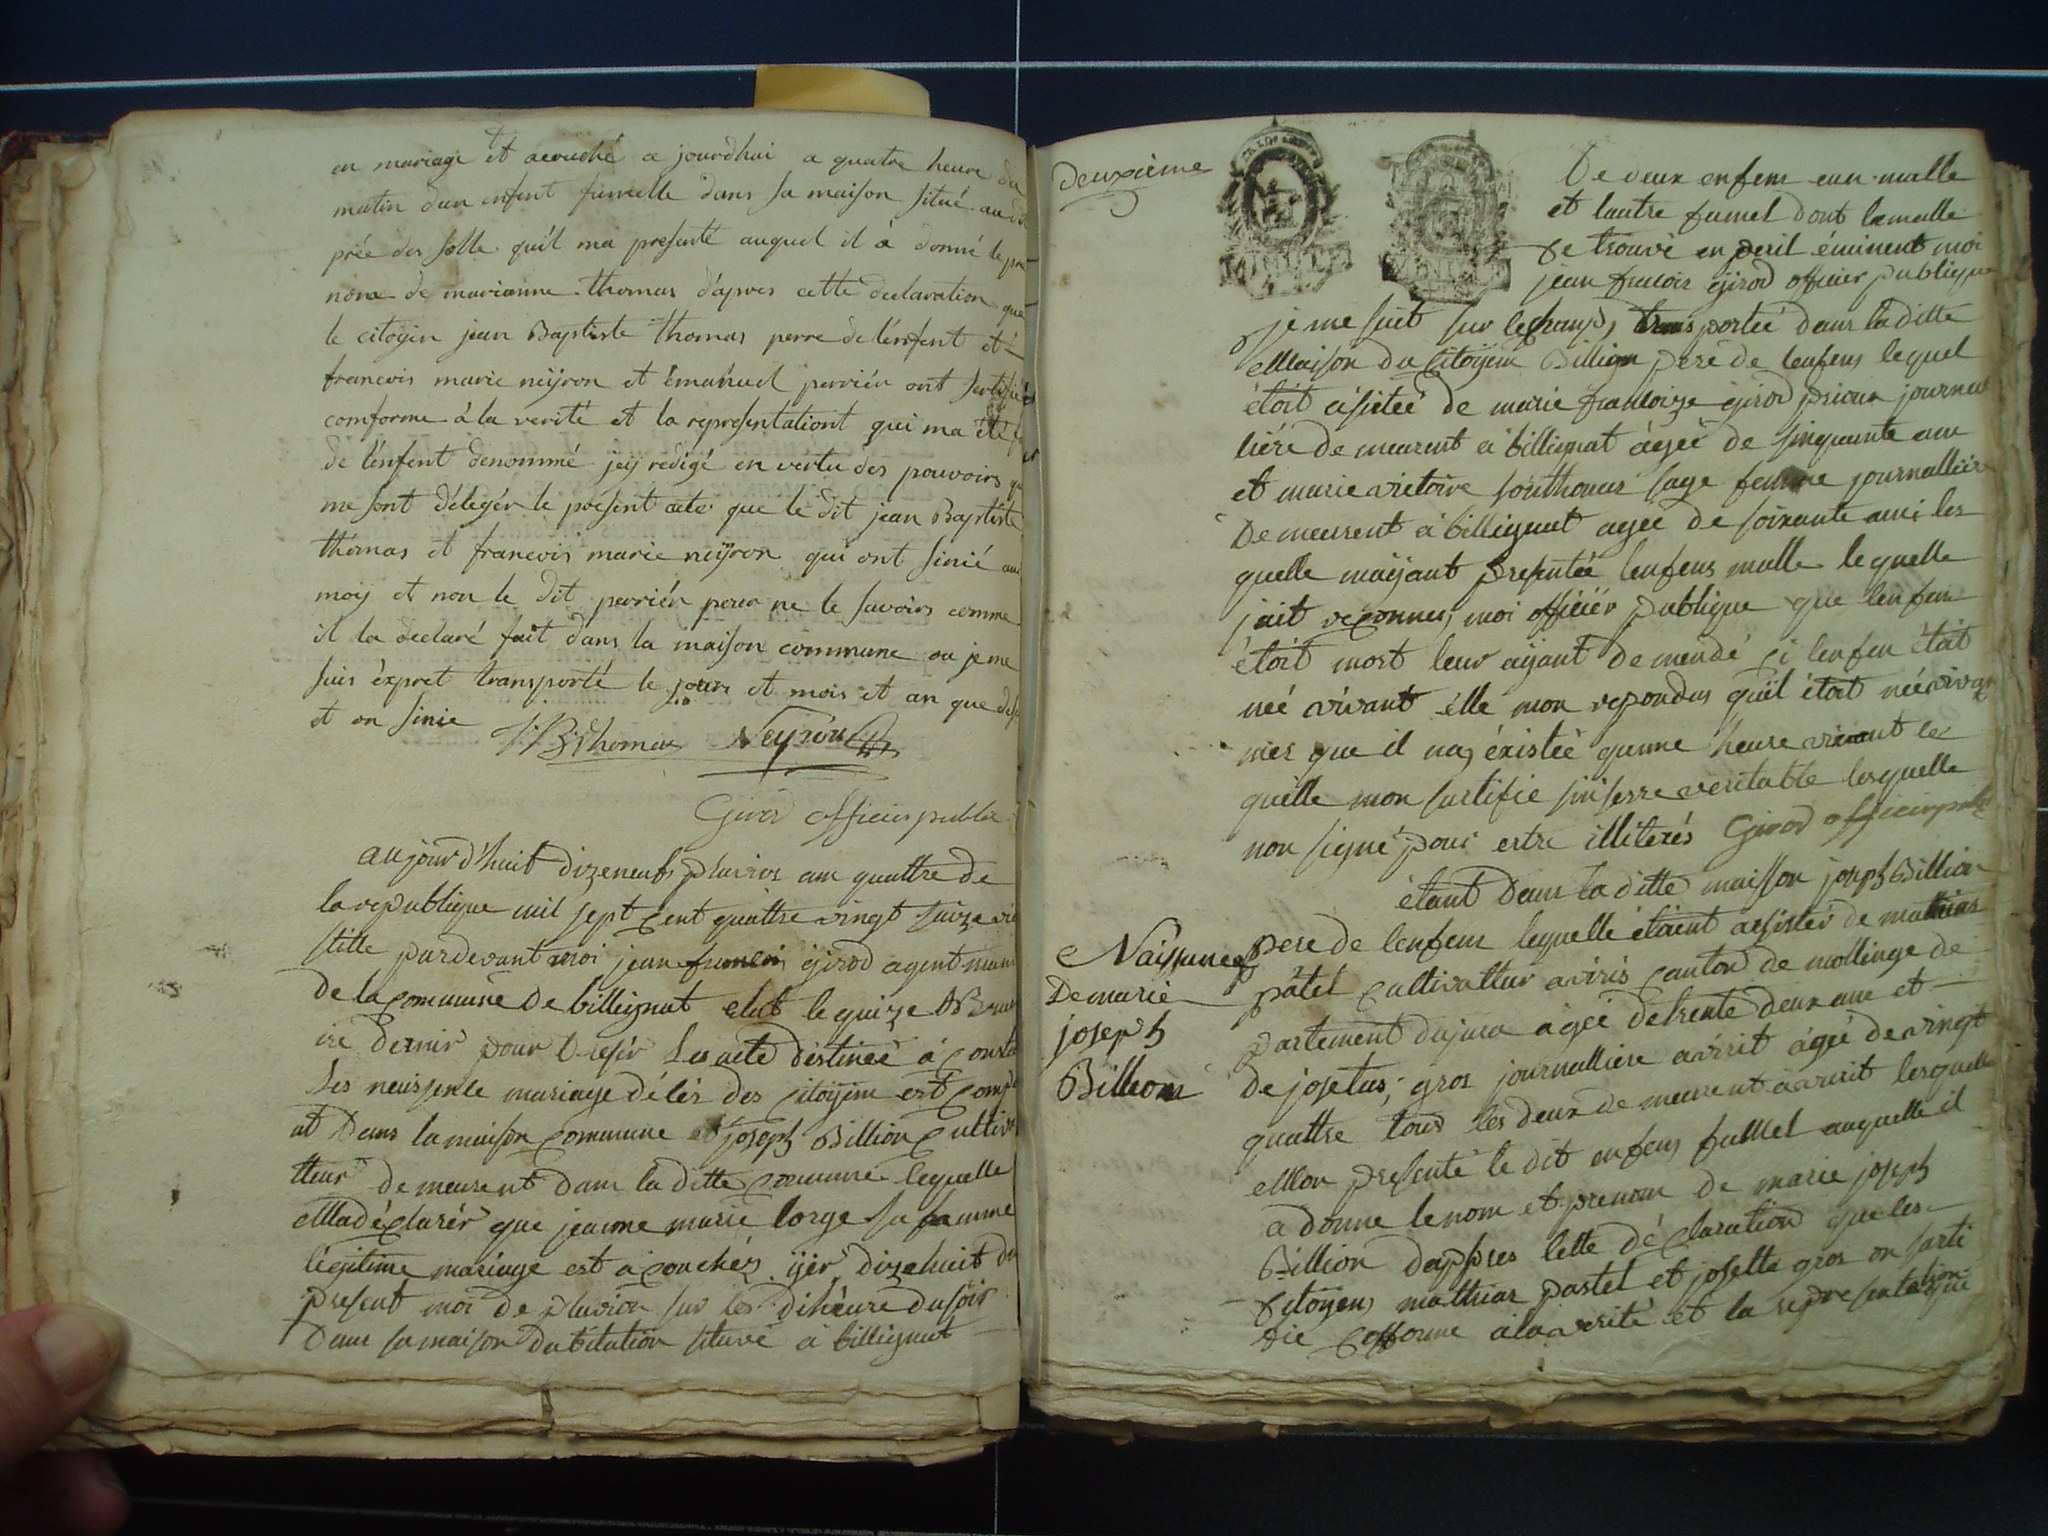 en mariage et acouché a jourdhui a quatre heure du
matin dun enfent fumelle dans sa maison situé au dit
prée des solle quil ma presenté auquel il à donné le pre
nom de marianne thomas d'apres cette declaration que
le citoyin jean Baptiste thomas perre de lenfent et
francois marie neÿron et émanuel perriér ont sertifié
comforme à la verité et la representationt qui ma été
de lénfent denommé jeÿ redigé en vertu des pouvoirs qui
me sont délegér le présent acte que le dit jean Baptiste
thomas et francois marie neÿron qui ont sinié avec
moÿ et non le dit perriér pour ne le savoirs comme
il la declaré fait dans la maison commune ou je me
suis éxpret transporté le jours et mois et an que desu
et on sinie
JB thomas Neyron
Girod officier public
aujourd'huit dizeneufs pluvios am quattre de
la republique mil sept cent quattre vingt saize vie
stille pardevant moi jean francois girod agent muni
de la commune de billignat elut le quinze
ire dernir pour dresér les acte déstineé à consta
les naissence mariage délés des citoyem est comp
ut Dans la maison commune et joseph Billion cultiva
tteur demeurent dans la ditte commune lequelle
Madéclarér que jeanne marie lorge sa famme
légitime mariage est acouchés ÿér dizehuit du
present moi de pluvion sur les dihéure dusoir
Dans sa maison dabitation situé à billignat
deuxième
De deux enfens eun malle
et lautre fumel dont lamalle
se trouvé en peril éminent moi
jean francois girod officier publique
je me suit sur lechamps transportée dans laditte
Maison du Citoyem Billion pere de lenfens lequel
étoit asistée de marie francoize girod prioux journal
liére demeurent à billignat ageé de sinquante an
et marie victoire southonax sage femme journalliére
Demeurent à billignat ageé de soixante ans les
quelle maÿant presentée lenfens malle lequelle
jait reconnes, moi officiér publique que lenfens
étoit mort leur aÿant demendé ci lenfen étoit
née vivant elle mon repondus quil étoit née vivan
mes que il nas éxisteé qunne heure vivant les
quelle mon sertifie sinserre veritable lesquelle
non signé pour estre illiterés Girod officierpublic
étant Dans la ditte maisson joseph Billion
Naissance
De marie
joseph
Billion
pere de lenfens lequelle étoient asistér de mathias
pâtel cultivatteur aviris canton de mollinge dé
partement dujura ageé detrente deux ans et
de josetas, gros journalliere avirit ageé de vingt
quattre tous les deux demeurent à avirit lesquelle
Mon presenté le dit enfens fumel auquelle il
a donne lenom et prenom de marie joseph
Billion dapres lette déclaration que les
Citoyens mathias pastel et josette gros on sarti
fie Cofforme alaverité et la representation